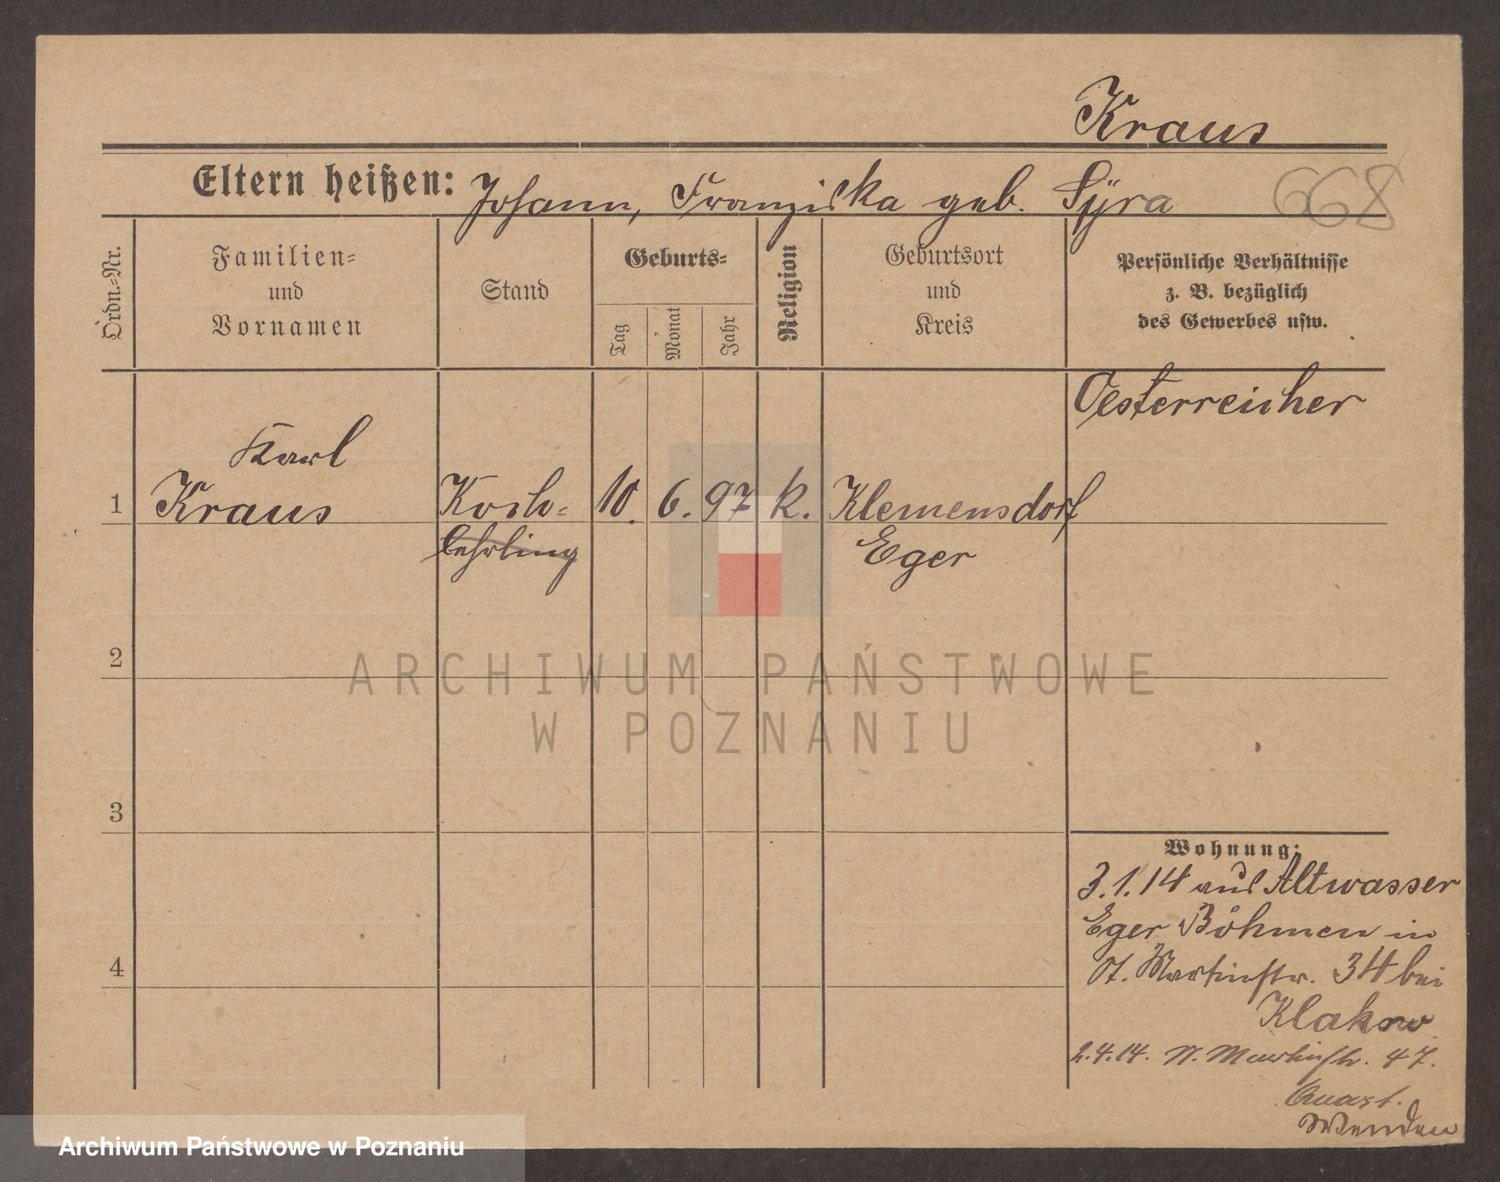 Kraus
Eltern heißen: Johann, Franziska geb. Syra
668
Ordn.=Nr.
Familien=
und
Vornamen
Stand
Geburts=
Tag
Monat
Jahr
Religion
Geburtsort
und
Kreis
Persönliche Verhältnisse
z. B. bezüglich
des Gewerbes usw.
Oesterreicher
Karl
1 Kraus Koch= 10. 6. 97 k. Klemensdorf
lehrling Eger
2
3
4
Wohnung:
3.1.14 aus Altwasser
Eger Böhmen in
St. Martinstr. 34 bei
Klakow
2.4.14. St. Martinstr. 47.
Quast.
Wenden
ARCHIWUM PAŃSTWOWE
W POZNANIU
Archiwum Państwowe w Poznaniu